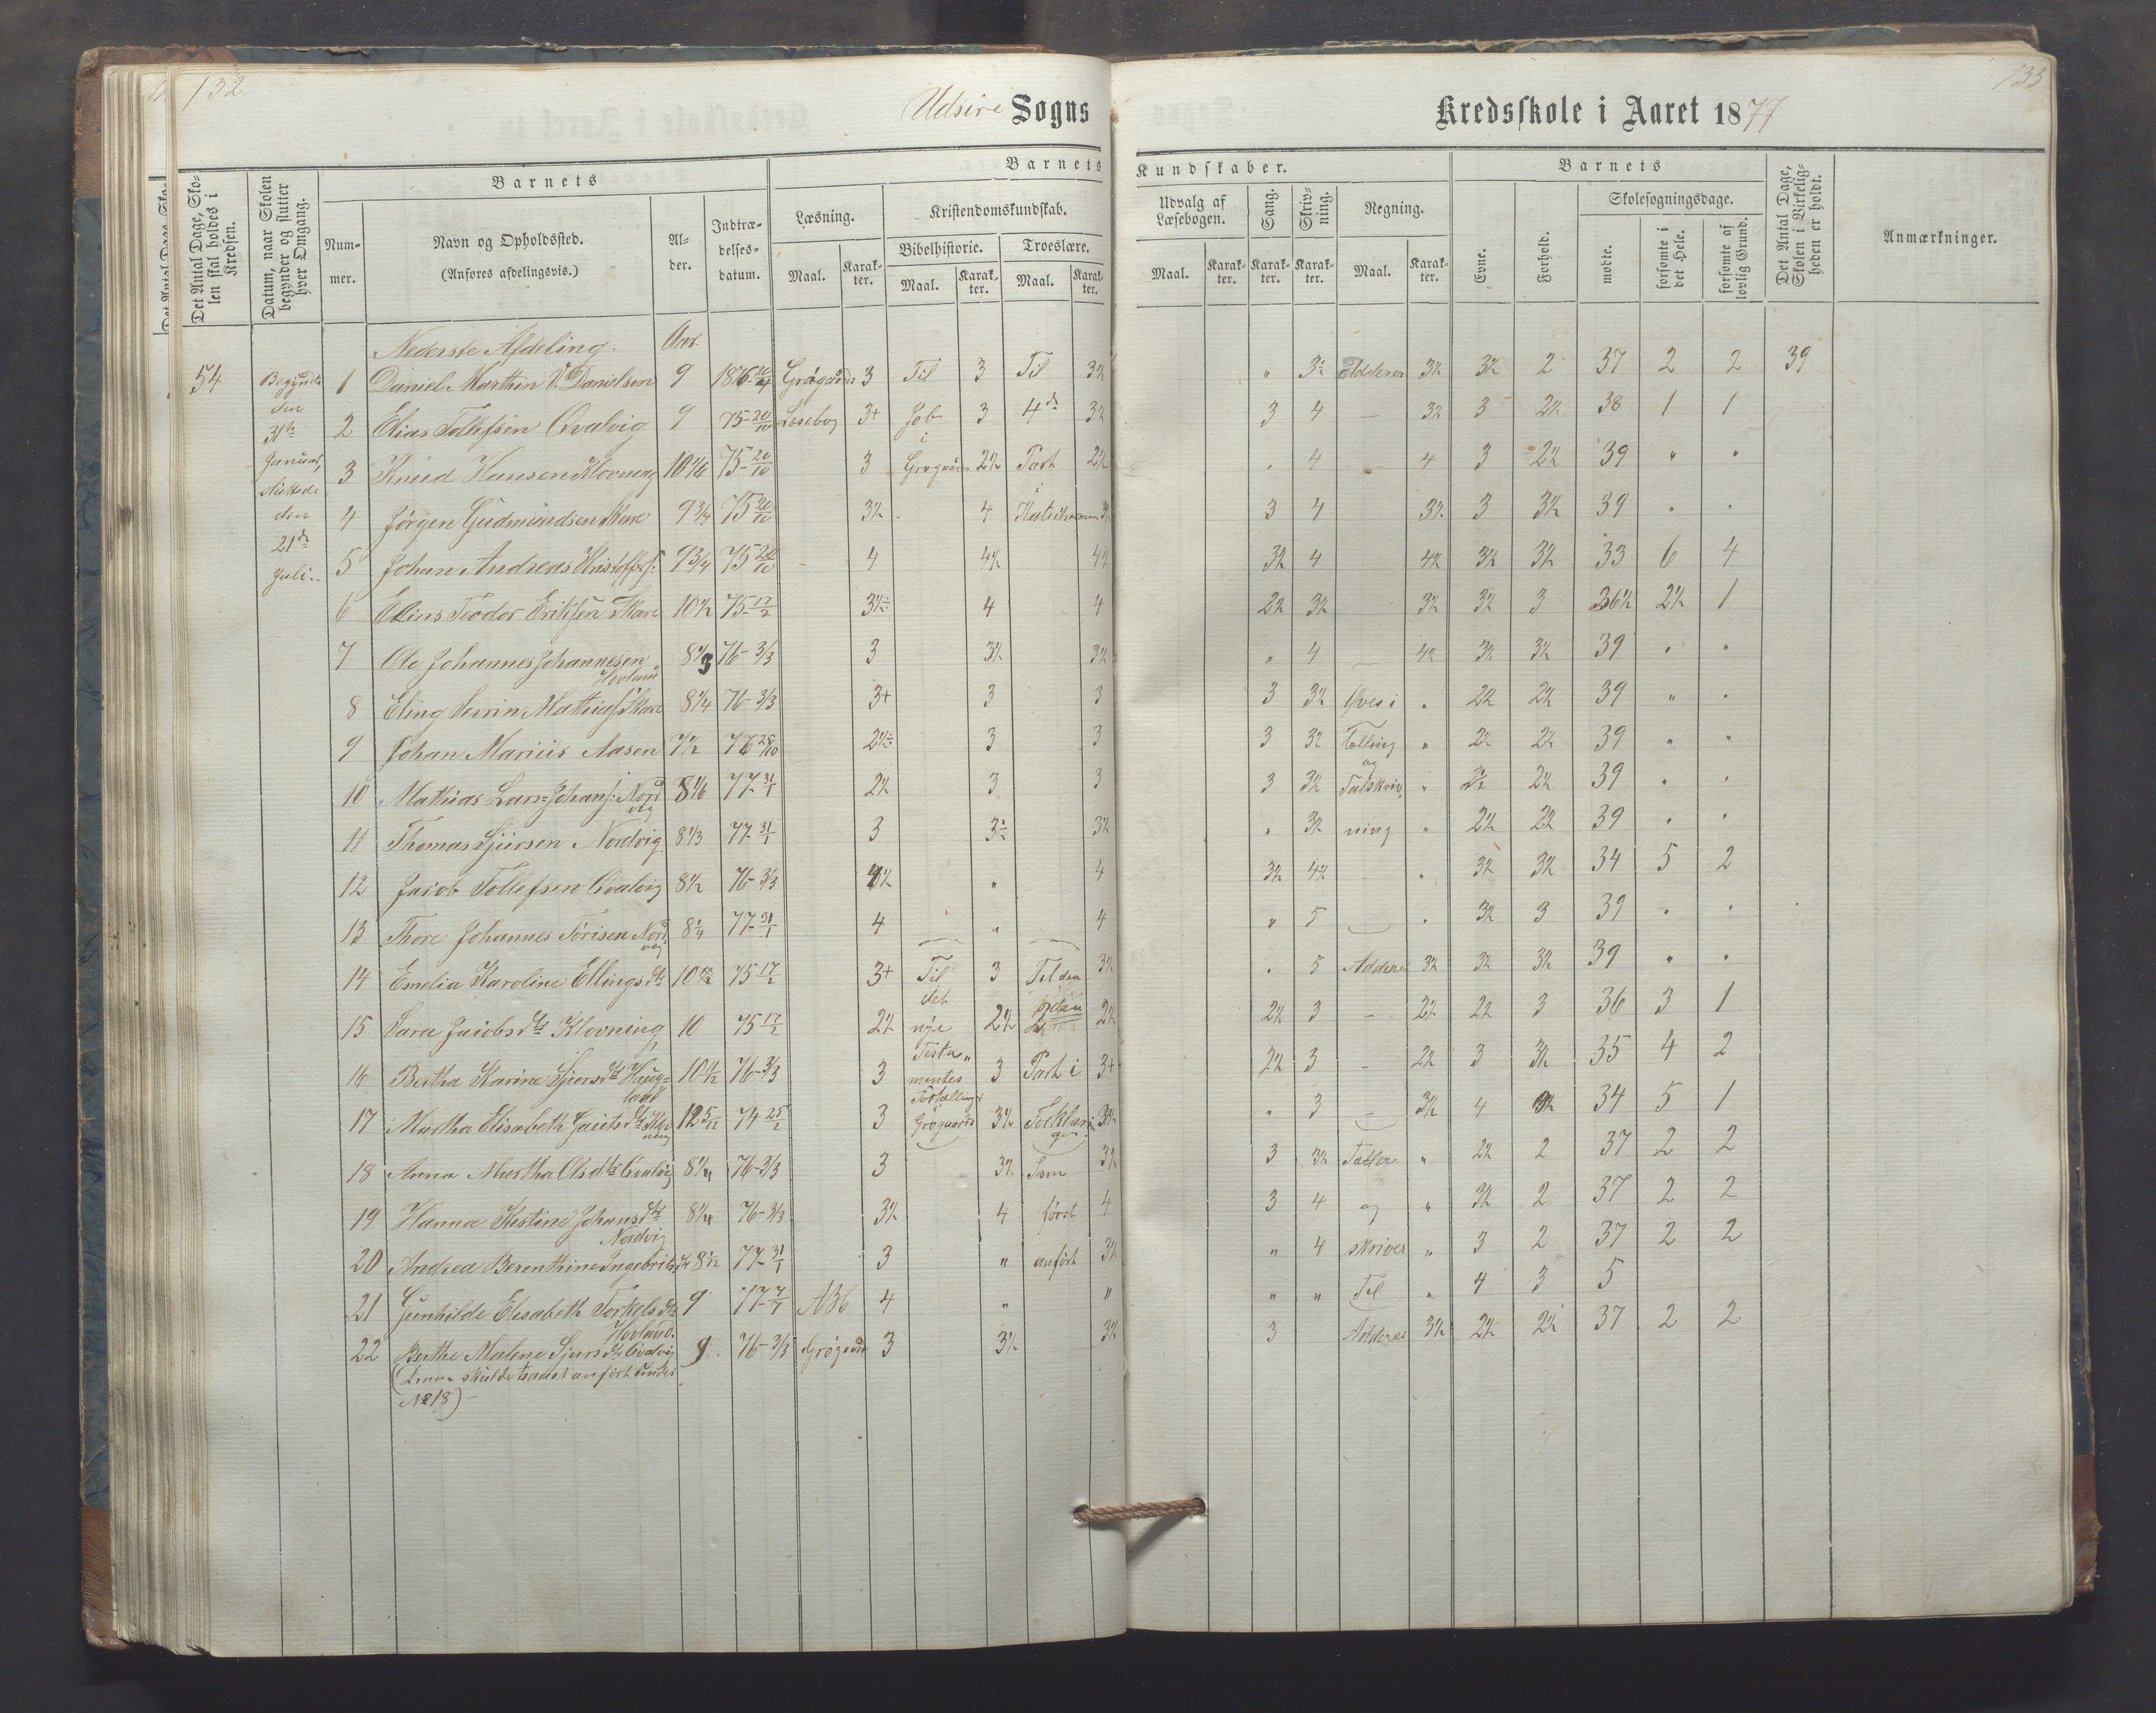 132
133
Udsire Sogns Kredsskole i Aaret 1877
Det Antal Dage, Sko-
len skal holdes i
Kredsen.
Datum, naar Skolen
begynder og slutter
hver Omgang.
Barnets
Num-
mer.
Navn og Opholdssted.
(Anføres afdelingsvis.)
Al-
der.
Indtræ-
delses-
datum.
Barnets Kundskaber.
Læsning.
Maal. Karak-
ter.
Kristendomskundskab.
Bibelhistorie.
Maal. Karak-
ter.
Troeslære.
Maal. Karak-
ter.
Udvalg af
Læsebogen.
Maal. Karak-
ter.
Sang.
Karak-
ter.
Skriv-
ning.
Karak-
ter.
Regning.
Maal. Karak-
ter.
Barnets
Evne.
Forhold.
Skolesøgningsdage.
mødte.
forsømte i
det Hele.
forsømte af
lovlig Grund.
Det Antal Dage,
Skolen i Virkelig-
heden er holdt.
Anmærkninger.
Nederste Afdeling. Aar.
54
Begyndte
den
31te
Januar,
sluttede
den
21de
Juli.
1 Daniel Marthin V. Danielsen 9 1876 Grøgaards 3 Til 3 Til 3½ " Adderer 3½ 3½ 2 37 2 2 39
2 Elias Tollefsen Qvalvig 9 75-20/10 Læsebog 3+ Job 3 4de 3½ 3 4 – 3½ 3 2½ 38 1 1
3 Knud Hansen Klovning 10 1/6 75-20/10 3 i Grøgaards 2½ Part 2½ " 4 4 3 2½ 39 " "
4 Jørgen Gudmundsen Skare 9¾ 75 20/10 3½ 4 i Katekismen 3½ 3 4 3½ 3 3½ 39 " "
5 Johan Andreas Kristoffers: 9¾ 75 20/10 4 4½ 4½ 3½ 4 4½ 3½ 3½ 33 6 4
6 Elius Teodor Eriksen Skare 10½ 75-17/2 3½ 4 4 2½ 3½ 3½ 3½ 3 36½ 2½ 1
7 Ole Johannes Johannesen Hovland 8 1/3 76-3/3 3 3½ 3½ " 4 – 4½ 3½ 3½ 39 " "
8 Eling Severin Mathias: Skare 8¼ 76-3/3 3+ 3 3 3 3½ Øves i " 2½ 2½ 39 " "
9 Johan Marius Aasen 7½ 76 25/10 2½ 3 3 3 3½ Tælling " 2½ 2½ 39 " "
10 Mathias Lars: Johans: Nordvig 8 1/6 77-31/1 2½ 3 3 3 3½ og Talskriv- " 2½ 2½ 39 " "
11 Thomas Sjursen Nordvig 8 1/3 77-31/1 3 3½ 3½ " 3½ ning " 2½ 2½ 39 " "
12 Jacob Tollefsen Qvalvig 8½ 76-3/3 4½ " 4 3½ 4½ " 3½ 3½ 34 5 2
13 Thore Johannes Torisen Nordvig 77-31/1 4 " 4 " 5 " 3½ 3 39 " "
14 Emelia Karoline Ellingsdt 75 17/2 3+ Til 3 Til den 3½ " 5 Adderer 3½ 3½ 3½ 39 " "
15 Sara Jacobsdtr Klovning 10 75 17/2 2½ det nye 2½ 2½ 2½ 3 – 2½ 2½ 3 36 3 1
16 Bertha Karine Sjursdtr Haug-
land 76-3/3 3 Testa-
mentes 3 Part i 3+ 2½ 3 – 2½ 3 3½ 35 4 2
17 Martha Elisabeth Gautsdtr 12 5/12 74 25/2 3 Fortællinger
Grøgaards 3½ Forklarin-
gen 3½ " 3 – 3½ 4 34 5 1
18 Anna Martha Olsdtr Qvalvig 8¼ 76-3/3 3 3½ Som 3½ 3 3½ Tæller " 2½ 2 37 2 2
19 Hanna Kistine Johansdtr
Nordvig 8¼ 76-3/3 3½ 4 først 4 3 4 og " 3½ 2 37 2 2
20 Andrea Berenthine Ingebritsdtr 77-31/1 3 " anført 3½ " 4 skriver " 3 2 37 2 2
21 Gunhilde Elisabeth Torkelsdtr
Hovland. 9 77 Abc 4 " " " " Til " 4 3 5
22 Berthe Malene Sjursdtr Qvalvig 9 76-3/3 Grøgaards 3 3½ 3½ 3 Adderer 3½ 2½ 2½ 37 2 2
(Denne skulde været anført under
No 18) –